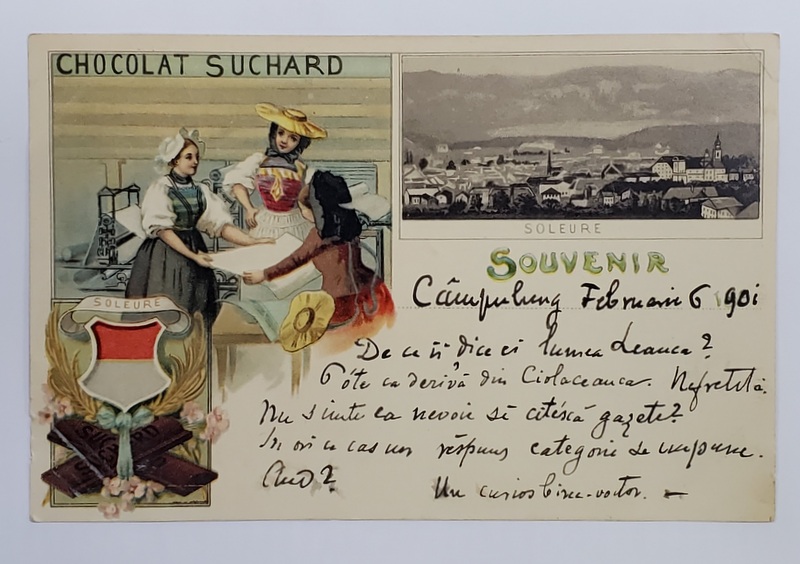 CHOCOLAT SUCHARD
SOLEURE
SOUVENIR
Câmpulung Februarie 6 901
De ce îi dice ei lumea Leanca?
Póte ca derivă din Ciolaceanca.
Nu simte ea nevoie să citéscă gazete?
In ori ce cas un réspuns categoric se impune.
Un curios bine-voitor. —
SOLEURE
SUCHARD